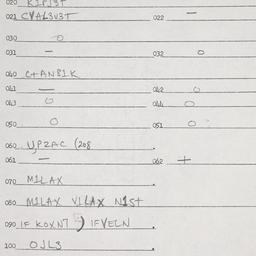 020 KIPI3T
021 CVAL3V3T 022 —
030 O
031 — 032 O
040 C+ANB1K
041 — 042 O
043 O 044 O
050 O 051 O
060 UPZAC (208
061 — 062 +
070 MILAX
080 MILAX VILAX N1St
090 IF KOXN7 ) IFVELN
100 OJL3